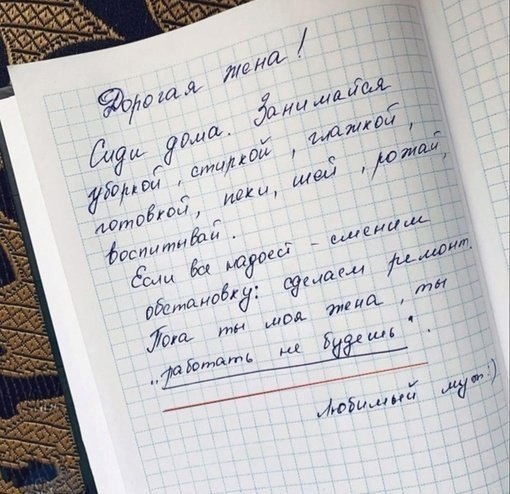 Дорогая жена!
Сиди дома. Занимайся
уборкой, стиркой, глажкой,
готовкой, пеки, шей, рожай,
воспитывай.
Если все надоест - сменим
обстановку: сделаем ремонт.
Пока ты моя жена, ты
"работать не будешь".
Любимый муж:)